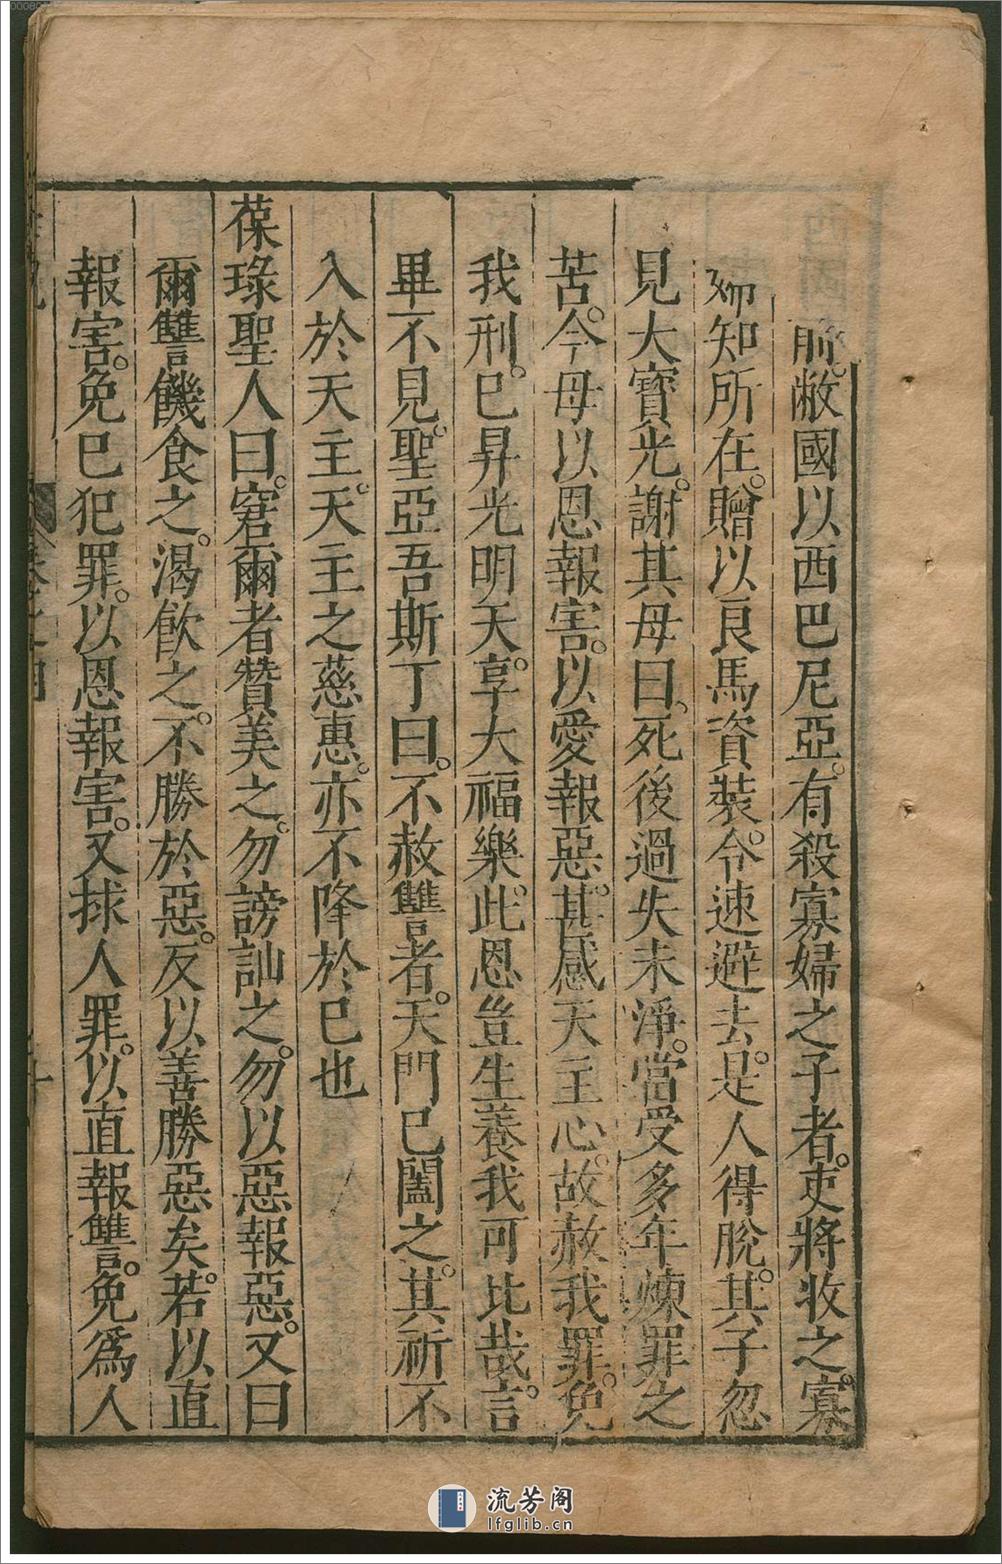 前。敝國以西巴尼亞。有殺寡婦之子者。吏將收之。寡
婦知所在。贈以良馬資裝。令速避去。是人得脫。其子忽
見大寶光。謝其母曰。死後過失未淨。當受多年煉罪之
苦。今母以恩報害。以愛報惡。甚感天主心。故赦我罪。免
我刑。巳昇光明天。享大福樂。此恩豈生養我可比哉。言
畢不見。聖亞吾斯丁曰。不赦讐者。天門巳闔之。其祈不
入於天主。天主之慈惠。亦不降於巳也
葆琭聖人曰。窘爾者贊美之。勿謗訕之。勿以惡報惡。又曰
爾讐饑食之。渴飲之。不勝於惡。反以善勝惡矣。若以直
報害。免巳犯罪。以恩報害。又捄人罪。以直報讐。免爲人
流芳阁
lfglib.cn